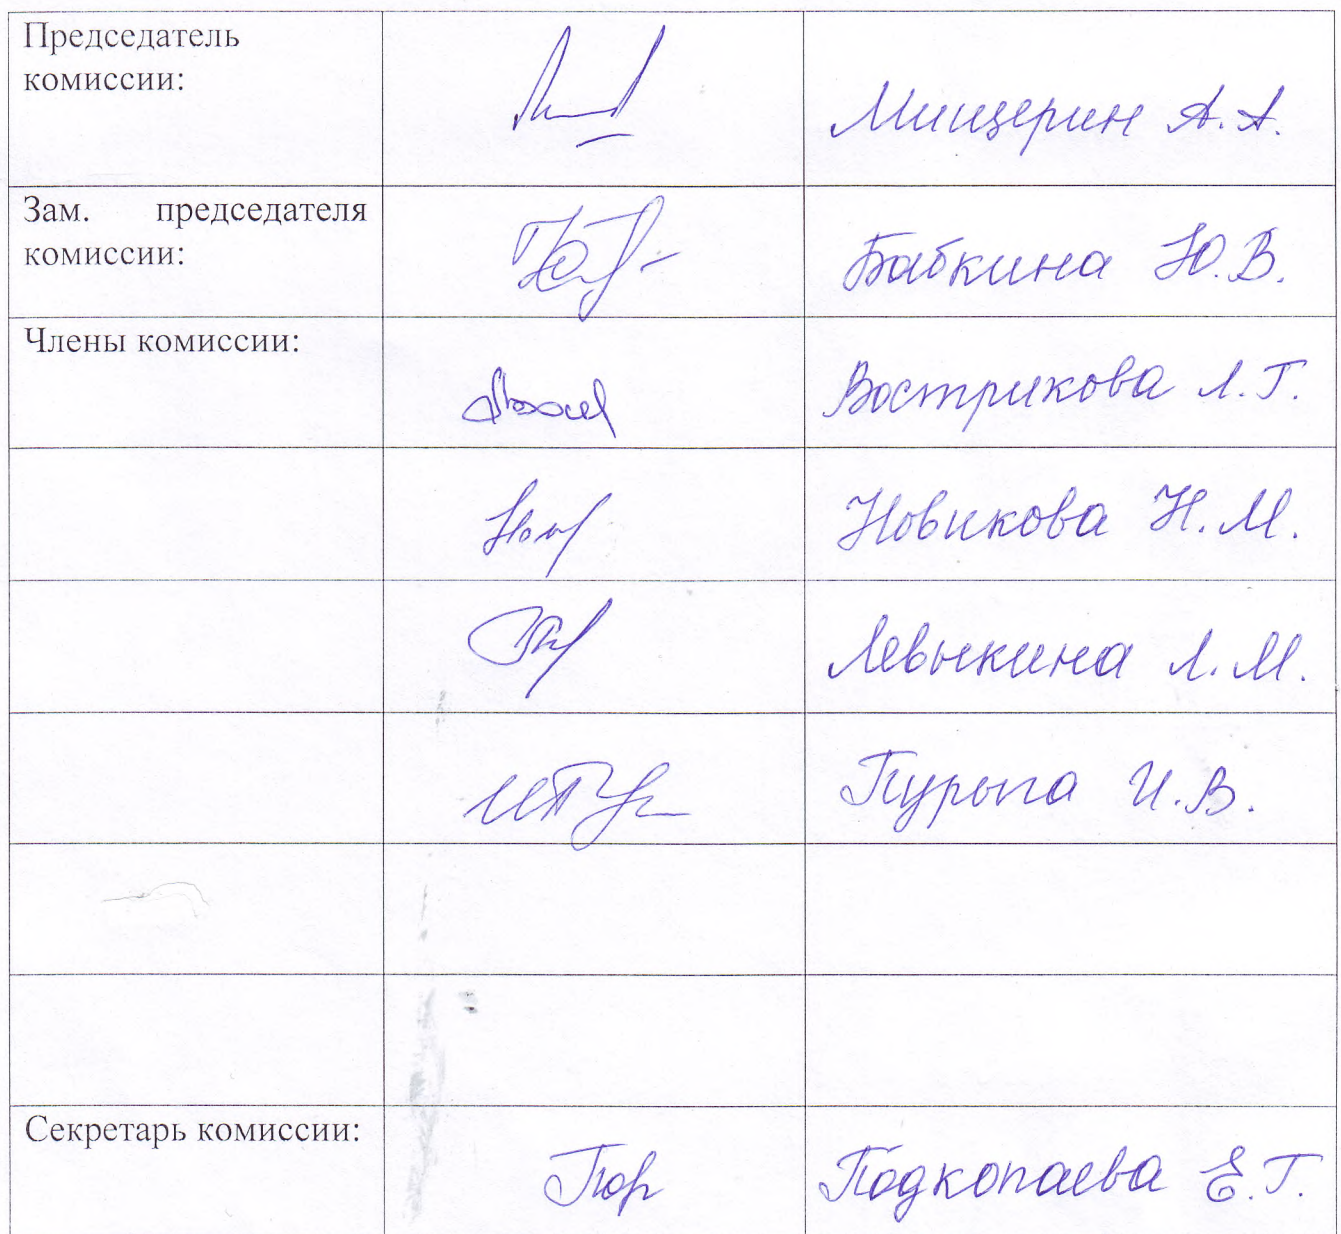 Председатель
комиссии:
Мищерин А.А.
Зам. председателя
комиссии:
Бабкина Ю.В.
Члены комиссии:
Вострикова Л.Г.
Новикова Н.М.
Левыкина Л.М.
Пурыга И.В.
Секретарь комиссии:
Подкопаева Е.Г.